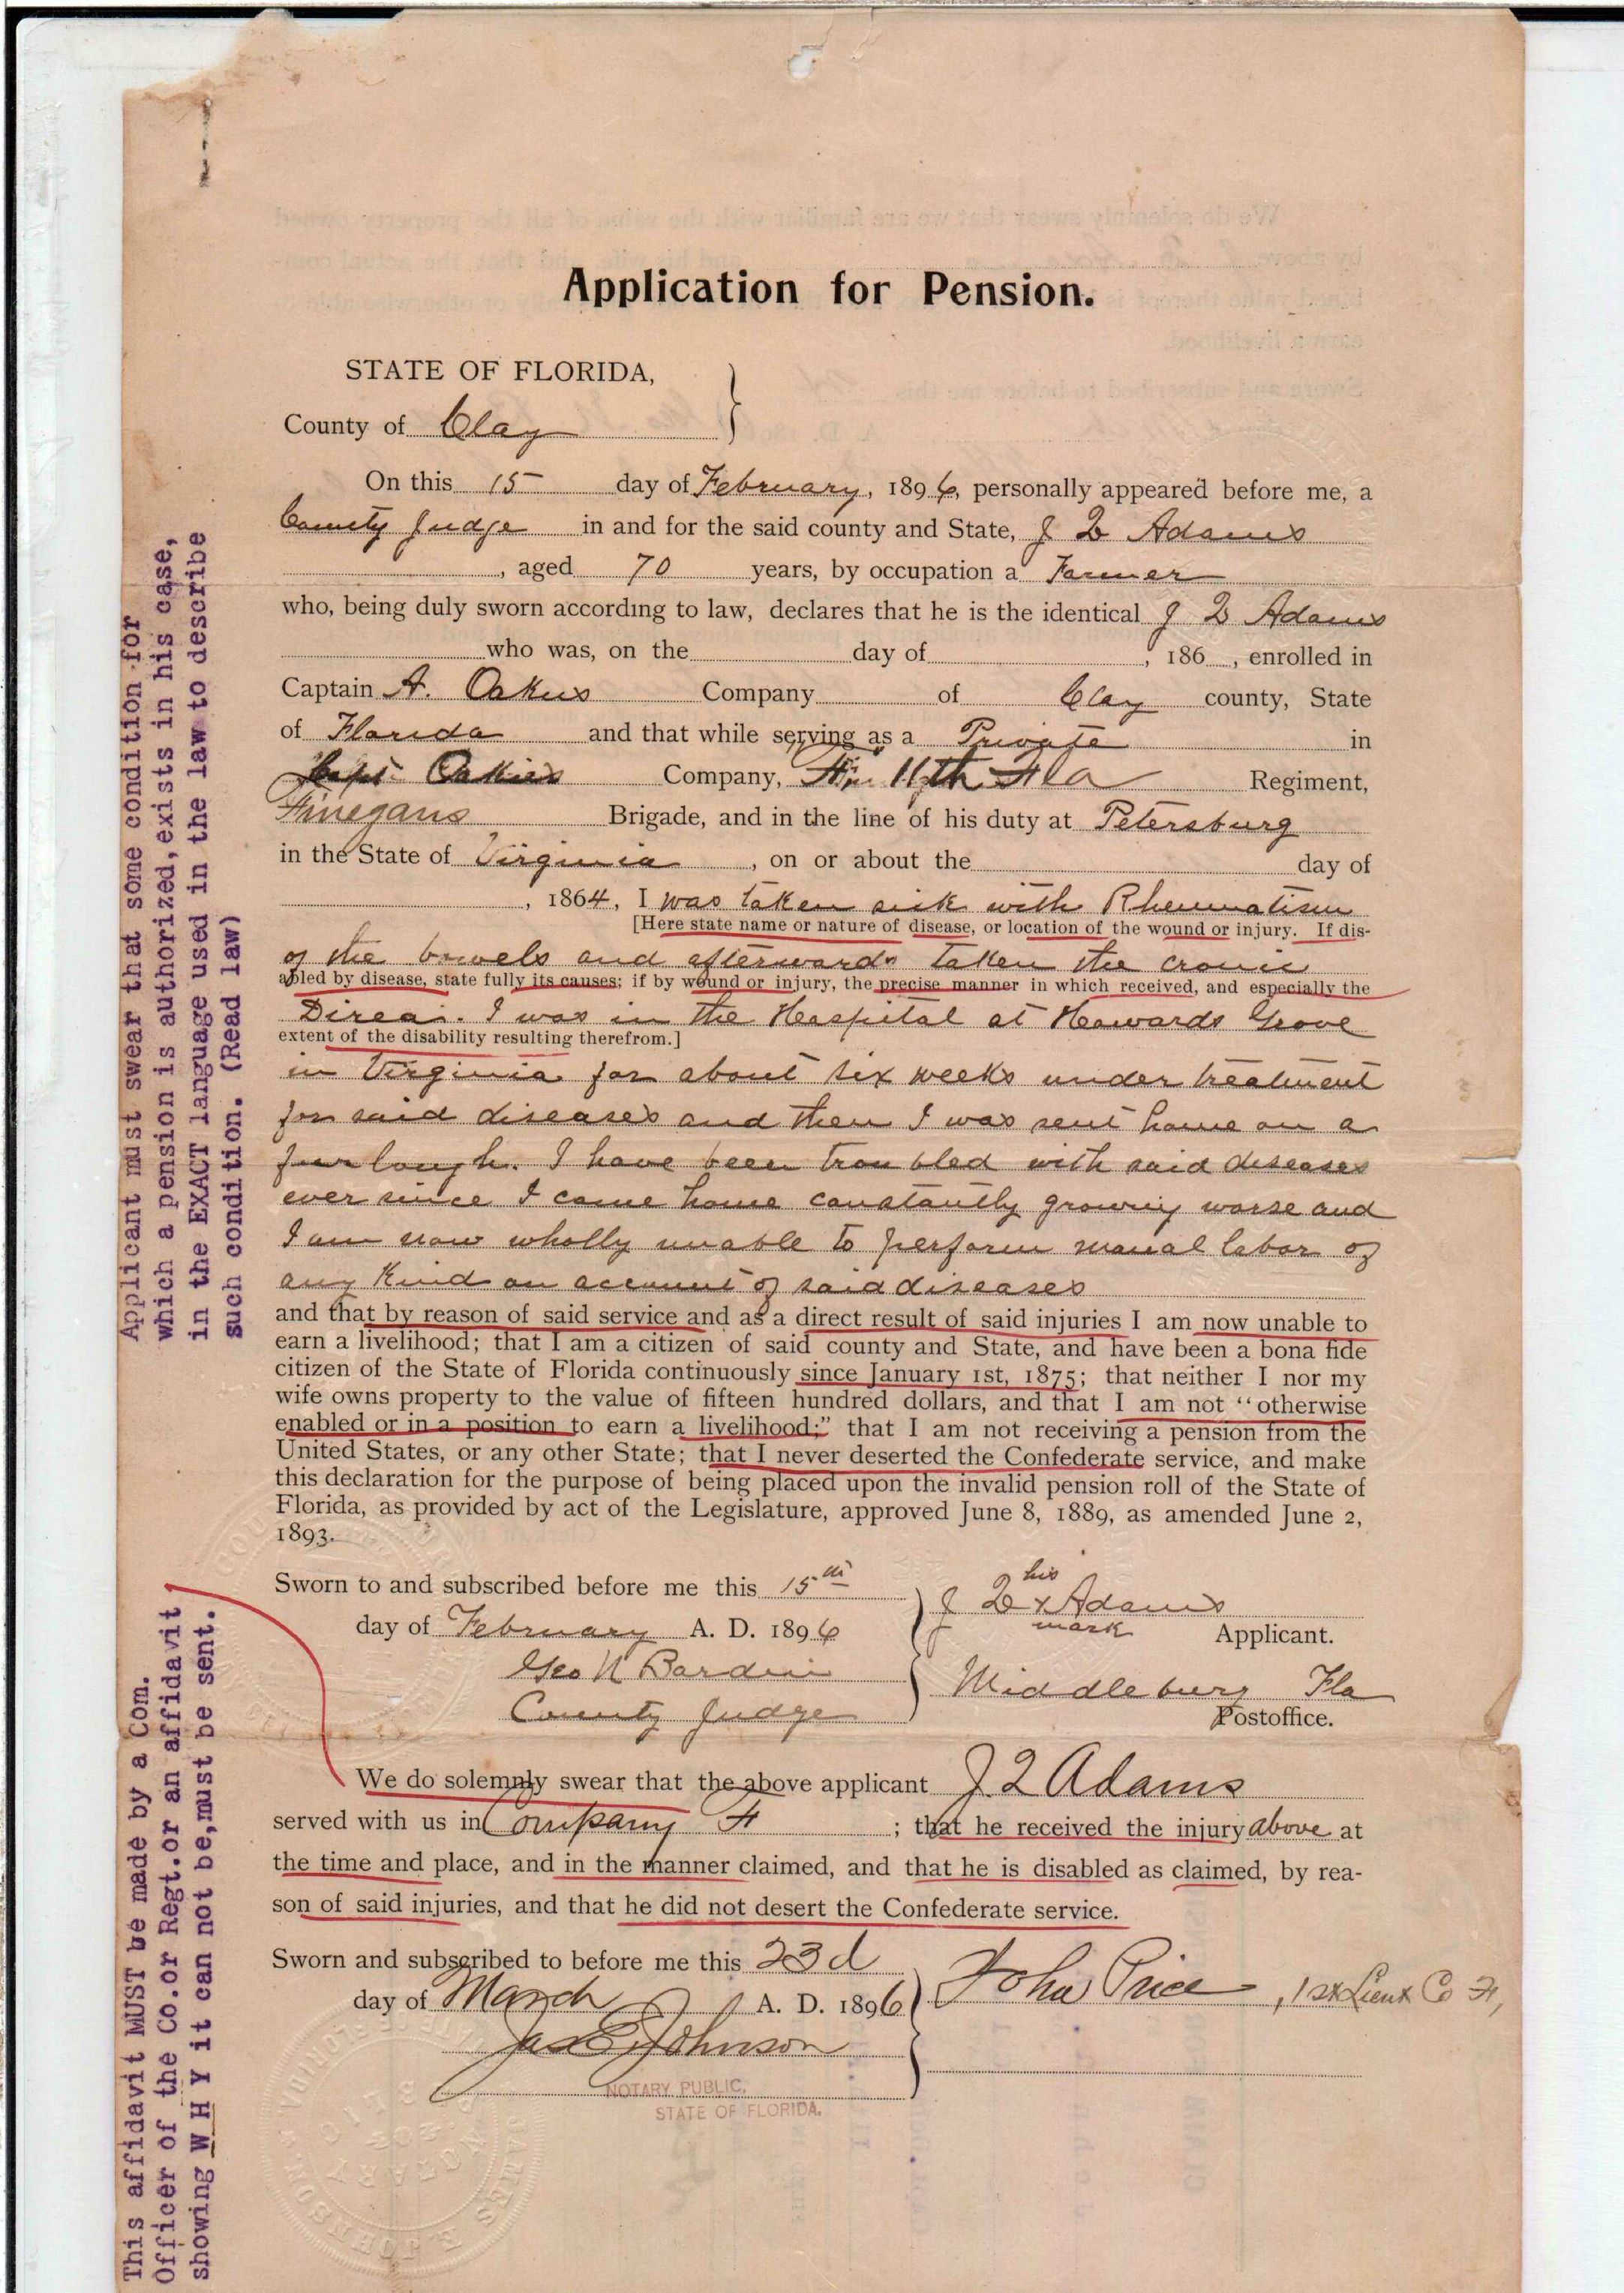 Application for Pension.
STATE OF FLORIDA,
County of Clay
On this 15 day of February, 1896, personally appeared before me, a
County Judge in and for the said county and State, J Q Adams
, aged 70 years, by occupation a Farmer
who, being duly sworn according to law, declares that he is the identical J Q Adams
who was, on the day of , 186 , enrolled in
Captain A. Oakus Company of Clay county, State
of Florida and that while serving as a Private in
Capt Oakies Company, F, 11th Fla Regiment,
Finegans Brigade, and in the line of his duty at Petersburg
in the State of Virginia , on or about the day of
, 1864, I was taken sick with Rheumatism
[Here state name or nature of disease, or location of the wound or injury. If dis-
of the bowels and afterwards taken the cronic
abled by disease, state fully its causes; if by wound or injury, the precise manner in which received, and especially the
Direa. I was in the Haspital at Howards Grove
extent of the disability resulting therefrom.]
in Virginia for about six weeks under treatment
for said diseases and then I was sent home on a
furlough. I have been troubled with said diseases
ever since I came home constantly growing worse and
I am now wholly unable to perform manual labor of
any kind on account of said diseases
and that by reason of said service and as a direct result of said injuries I am now unable to
earn a livelihood; that I am a citizen of said county and State, and have been a bona fide
citizen of the State of Florida continuously since January 1st, 1875; that neither I nor my
wife owns property to the value of fifteen hundred dollars, and that I am not "otherwise
enabled or in a position to earn a livelihood;" that I am not receiving a pension from the
United States, or any other State; that I never deserted the Confederate service, and make
this declaration for the purpose of being placed upon the invalid pension roll of the State of
Florida, as provided by act of the Legislature, approved June 8, 1889, as amended June 2,
1893.
Sworn to and subscribed before me this 15th
day of February A. D. 1896
Geo N Bardin
County Judge
his
J Q x Adams
mark Applicant.
Middleburg Fla
Postoffice.
We do solemnly swear that the above applicant J. Q Adams
served with us in Company F ; that he received the injury above at
the time and place, and in the manner claimed, and that he is disabled as claimed, by rea-
son of said injuries, and that he did not desert the Confederate service.
Sworn and subscribed to before me this 23d
day of March A. D. 1896
Jas E Johnson
NOTARY PUBLIC,
STATE OF FLORIDA.
John Price, 1st Lieut Co F,
Applicant must swear that some condition for
which a pension is authorized, exists in his case,
in the EXACT language used in the law to describe
such condition. (Read law)
This affidavit MUST be made by a Com.
Officer of the Co. or Regt. or an affidavit
showing W H Y it can not be, must be sent.